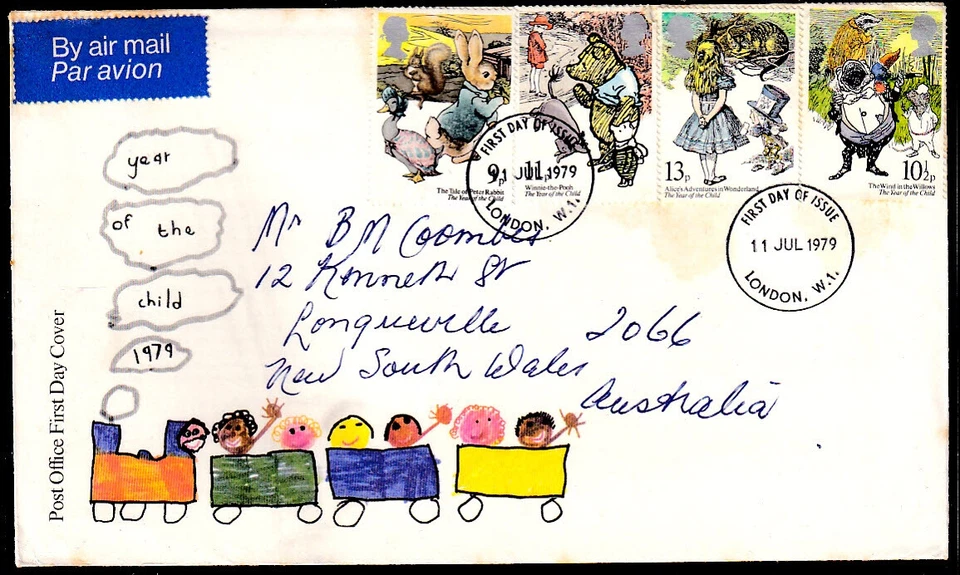 By air mail
Par avion
9p
The Tale of Peter Rabbit
The Year of the Child
11p
Winnie-the-Pooh
The Year of the Child
13p
Alice's Adventures in Wonderland
The Year of the Child
10½p
The Wind in the Willows
The Year of the Child
FIRST DAY OF ISSUE
11 JUL 1979
LONDON. W.1.
FIRST DAY OF ISSUE
11 JUL 1979
LONDON. W.1.
year
of the
child
1979
Mr B M Coombes
12 Kenneth St
Longueville 2066
New South Wales
Australia
Post Office First Day Cover